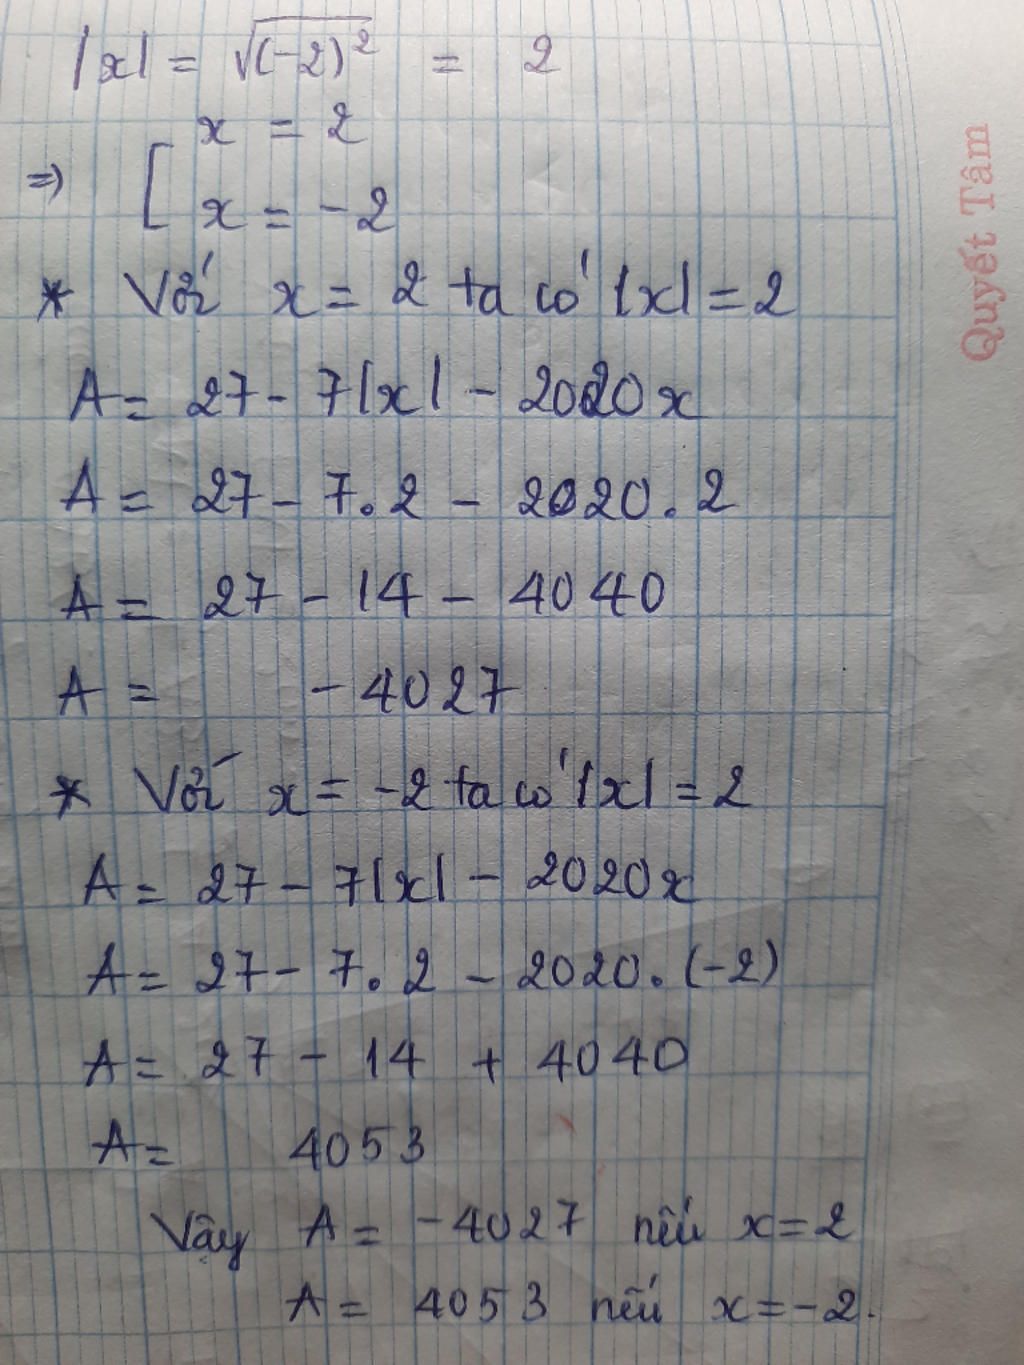 |x| = √(-2)² = 2
x = 2
⇒ [
x = -2
* Với x = 2 ta có |x| = 2
A = 27 - 7|x| - 2020x
A = 27 - 7.2 - 2020.2
A = 27 - 14 - 4040
A = - 4027
* Với x = -2 ta có |x| = 2
A = 27 - 7|x| - 2020x
A = 27 - 7.2 - 2020.(-2)
A = 27 - 14 + 4040
A = 4053
Vậy A = -4027 nếu x = 2
A = 4053 nếu x = -2.
Quyết Tâm